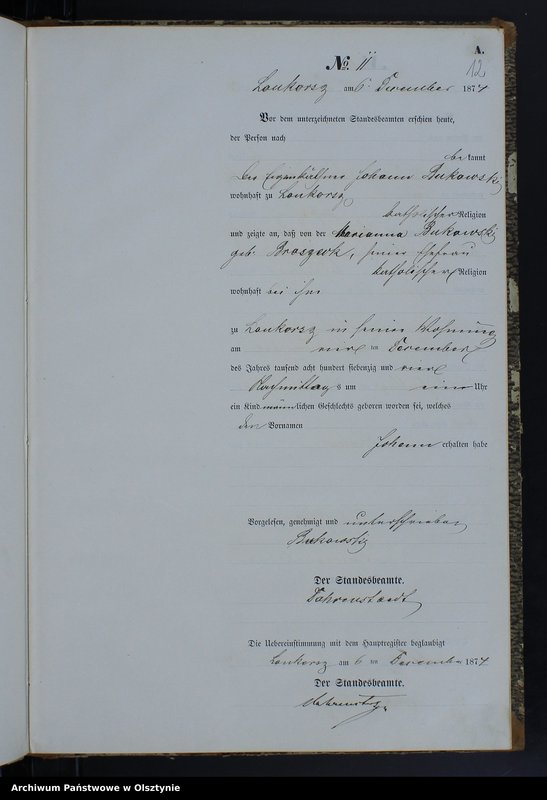 A.
No. 11
12
Loukorsz am 6. December 1874
Vor dem unterzeichneten Standesbeamten erschien heute,
der Person nach
bekannt
der Eigenkäthner Johann Bukowski
wohnhaft zu Loukorsz
katholischer Religion
und zeigte an, daß von der Marianna Bukowski
geb. seiner Ehefrau
katholischer Religion
wohnhaft bei ihm
zu Loukorsz in seiner Wohnung
am vier ten December
des Jahres tausend acht hundert siebenzig und vier
Nachmittags um ein Uhr
ein Kind männlichen Geschlechts geboren worden sei, welches
den Vornamen
Johann erhalten habe
Vorgelesen, genehmigt und unterschrieben
Bukowski
Der Standesbeamte.
Die Uebereinstimmung mit dem Hauptregister beglaubigt
Loukorsz am 6 ten December 1874
Der Standesbeamte.
Archiwum Państwowe w Olsztynie